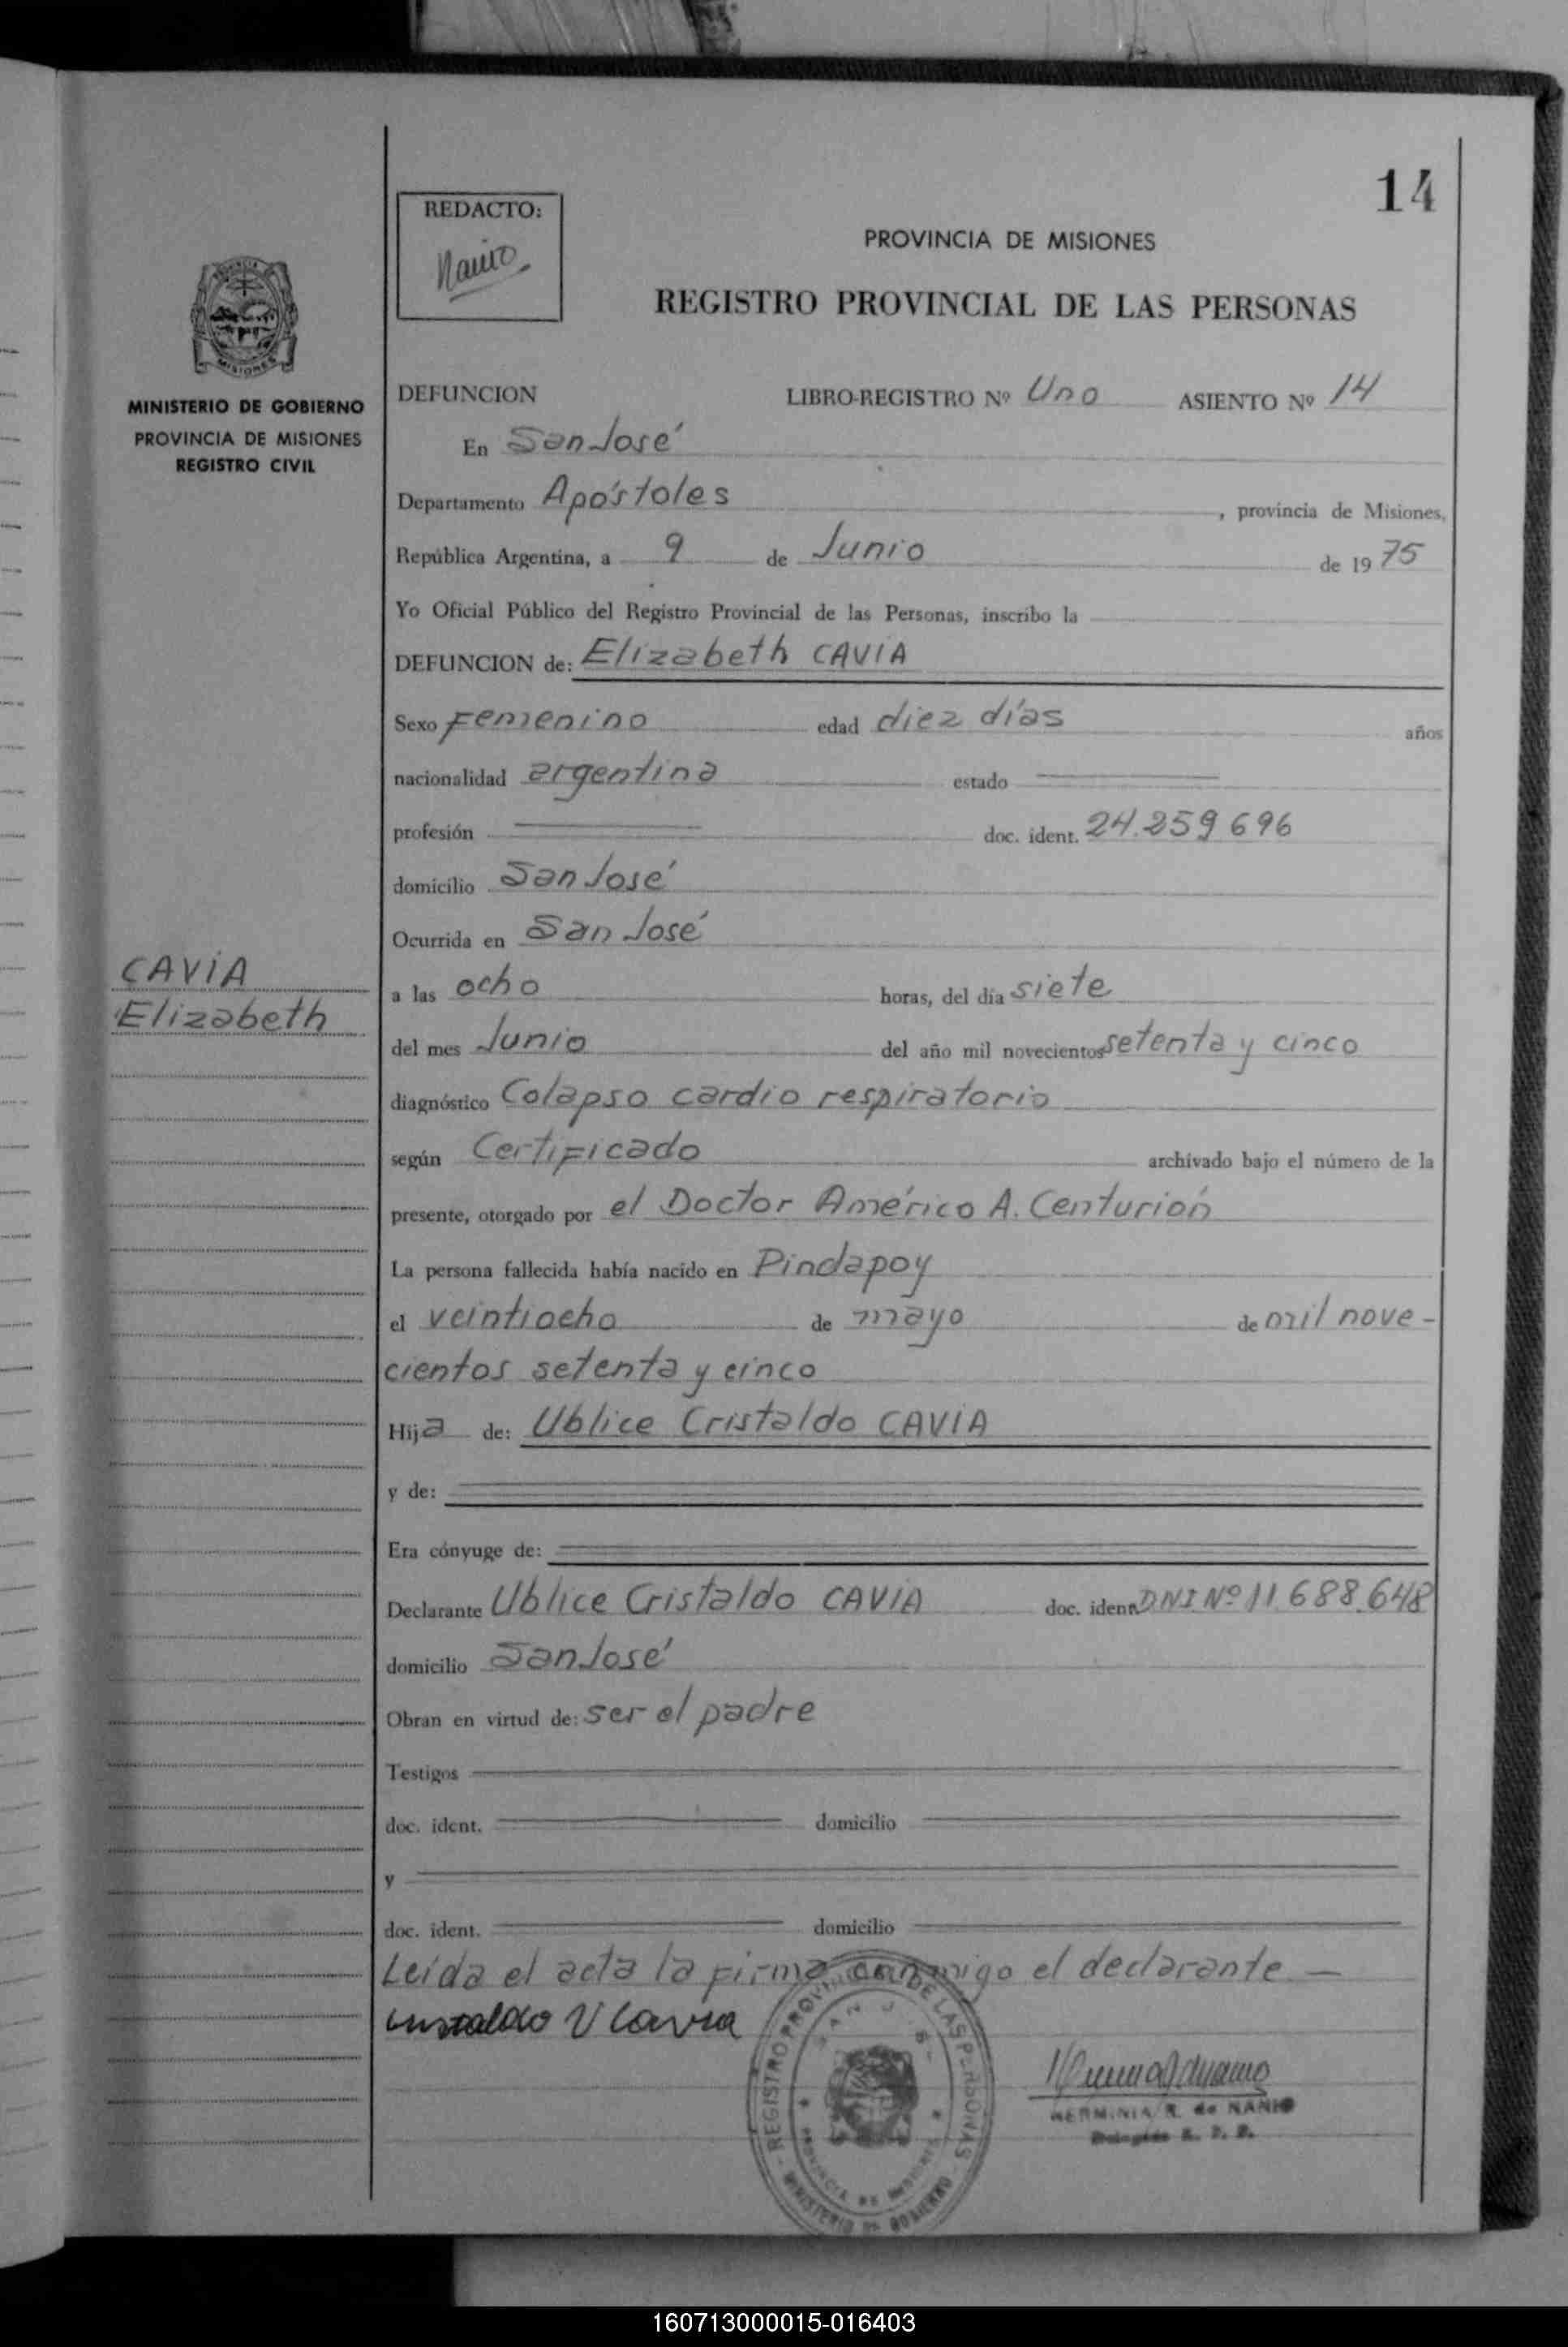 14
REDACTO:
Nanio
PROVINCIA DE MISIONES
REGISTRO PROVINCIAL DE LAS PERSONAS
MISIONES
MINISTERIO DE GOBIERNO
PROVINCIA DE MISIONES
REGISTRO CIVIL
DEFUNCION LIBRO-REGISTRO Nº Uno ASIENTO Nº 14
En San José
Departamento Apóstoles , provincia de Misiones,
República Argentina, a 9 de Junio de 1975
Yo Oficial Público del Registro Provincial de las Personas, inscribo la
DEFUNCION de: Elizabeth CAVIA
Sexo Femenino edad diez días años
nacionalidad argentina estado
profesión doc. ident. 24.259696
domicilio San José
Ocurrida en San José
CAVIA
Elizabeth
a las ocho horas, del día siete
del mes Junio del año mil novecientos setenta y cinco
diagnóstico Colapso cardio respiratorio
según Certificado archivado bajo el número de la
presente, otorgado por el Doctor Américo A. Centurión
La persona fallecida había nacido en Pindapoy
el veintiocho de mayo de mil nove-
cientos setenta y cinco
Hija de: Ublice Cristaldo CAVIA
y de:
Era cónyuge de:
Declarante Ublice Cristaldo CAVIA doc. iden DNI Nº 11.688.648
domicilio San José
Obran en virtud de: ser el padre
Testigos
doc. ident. domicilio
y
doc. ident. domicilio
Leída el acta la firma conmigo el declarante —
Cristaldo U Cavia
REGISTRO PROVINCIAL DE LAS PERSONAS
SAN JOSE
PROVINCIA DE MISIONES
MINISTERIO DE GOBIERNO
HERMINIA R. de NANIO
Delegada R. P. P.
160713000015-016403